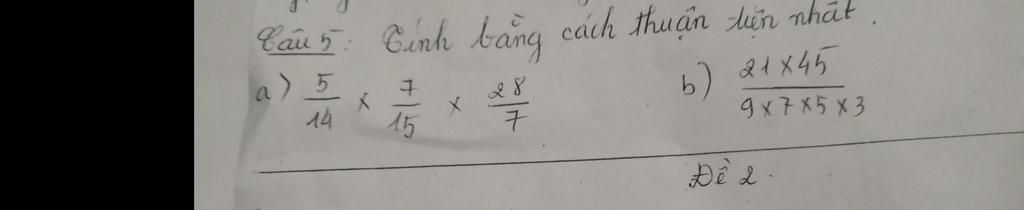 Câu 5: Tính bằng cách thuận tiện nhất.
a) 5/14 × 7/15 × 28/7
b) 21×45 / 9×7×5×3
Đề 2.